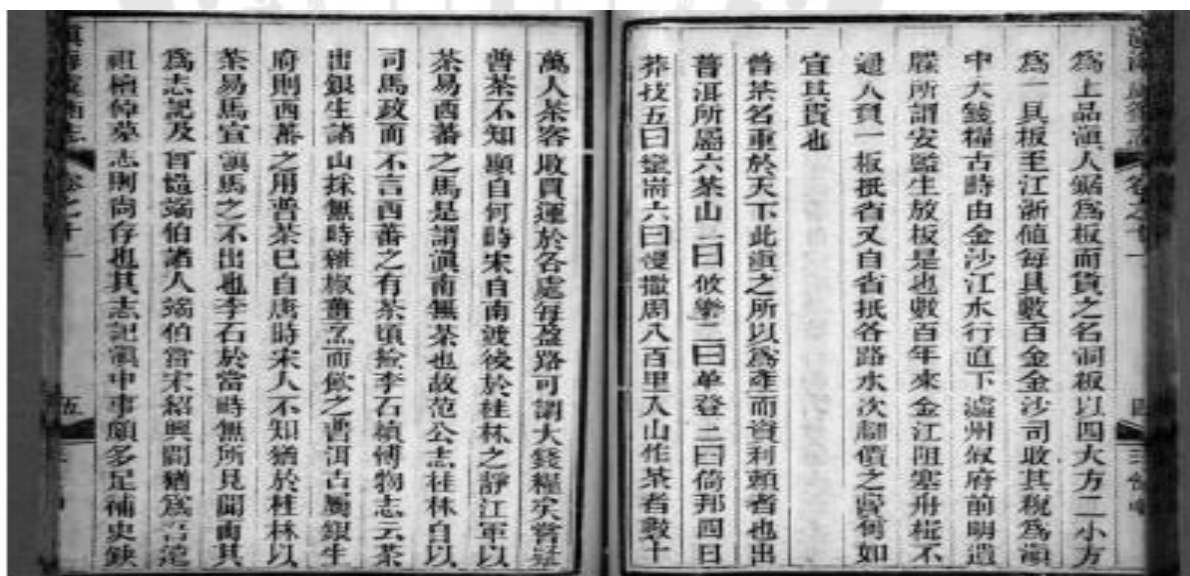 滇海虞衡志 卷之十一
為上品滇人鋸為板而貨之名洞板以四大方二小方
為一具板至江浙值每具數百金金沙司收其稅為滇
中大錢糧古時由金沙江水行直下瀘州敘府前明遺
牒所謂安監生放板是也數百年來金江阻塞舟楫不
通人負一板抵省又自省抵各路水次腳價之費何如
宜其貴也
普茶名重於天下此滇之所以為產而資利賴者也出
普洱所屬六茶山一曰攸樂二曰革登三曰倚邦四曰
莽技五曰蠻耑六曰慢撒周八百里入山作茶者數十
萬人茶客收買運於各處每盈路可謂大錢糧矣嘗疑
普茶不知顯自何時宋自南渡後於桂林之靜江軍以
茶易西蕃之馬是謂滇南無茶也故范公志桂林自以
司馬政而不言西蕃之有茶頃檢李石續博物志云茶
出銀生諸山採無時雜椒薑烹而飲之普洱古屬銀生
府則西蕃之用普茶已自唐時宋人不知猶於桂林以
茶易馬宜滇馬之不出也李石於當時無所見聞而其
為志記及曾慥端伯諸人端伯當宋紹興間猶為吾遠
祖檀倬墓志則尚存也其志記滇中事頗多足補史缺
滇海虞衡志 卷之十一 五